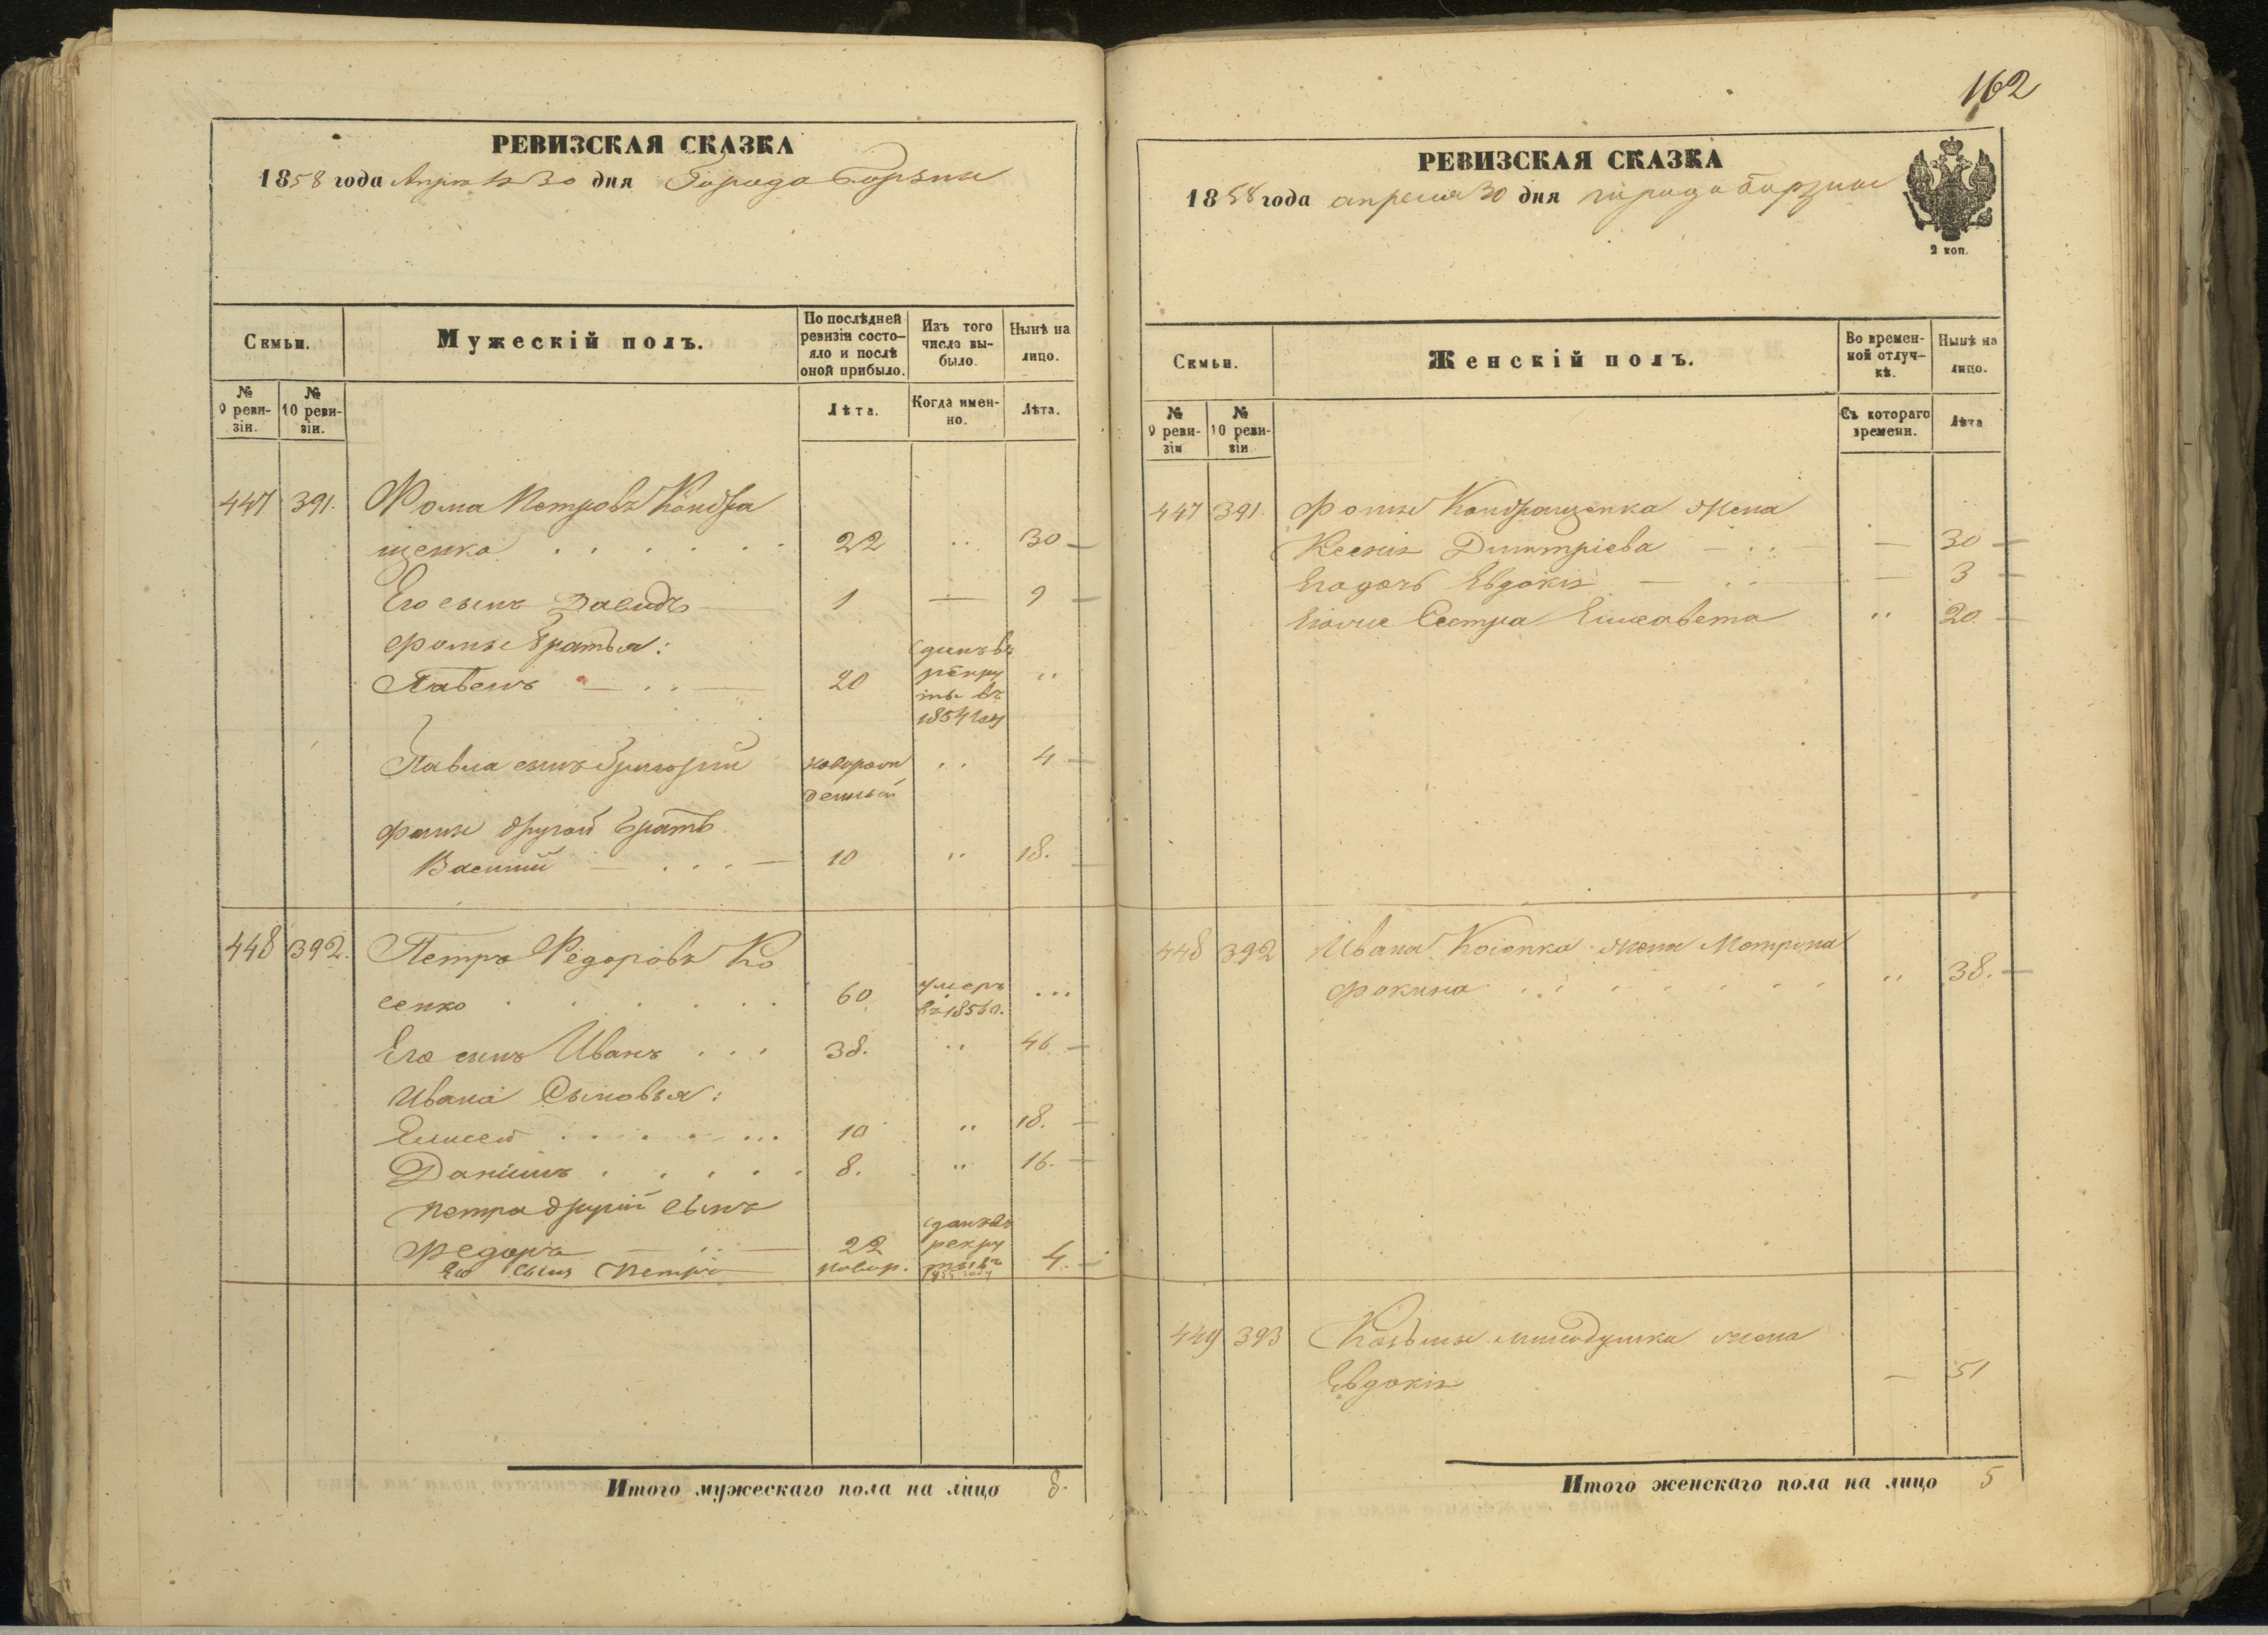 РЕВИЗСКАЯ СКАЗКА
1858 года Апреля 30 дня Города Борзны
Семьи.
Мужескій полъ.
По послѣдней ревизіи состо-
яло и послѣ
оной прибыло.
Изъ того
числа вы-
было.
Нынѣ на
лицо.
№
9 реви-
зіи.
№
10 реви-
зіи.
Лѣта.
Когда имен-
но.
Лѣта.
447 391. Фома Петровъ Кондра
щенко 22 30
Его сынъ Давидъ 1 — 9
Фомы братья:
Павелъ 20 Сданъ въ рекру
ты въ
1854 году
Павла сынъ Григорій новорож
денный 4
Фомы другой братъ
Василій 10 18.
448 392. Петръ Федоровъ Ко
сенко 60 умеръ
въ 1856 г.
Его сынъ Иванъ 38. 46
Ивана Сыновья:
Елисей 10 18.
Даніилъ 8. 16.
Петра другій сынъ
Федоръ 22 сданъ въ
рекру
ты въ
1855 году
Его сынъ Петръ новор. 4.
Итого мужескаго пола на лицо 8.
162
РЕВИЗСКАЯ СКАЗКА
1858 года апреля 30 дня города Борзны
2 коп.
Семьи.
Женскій полъ.
Во времен-
ной отлуч-
кѣ.
Нынѣ на
лицо.
№
9 реви-
зіи
№
10 реви-
зіи
Съ котораго
времени.
Лѣта
447 391. Фомы Кондращенка жена
Ксенія Димитріева — 30
Егодочь Евдокія — 3
Егоже Сестра Елисавета 20
448 392 Ивана Косенка жена Мотрона
Фокина 38.
449 393 Козьмы жена
Евдокія — 51
Итого женскаго пола на лицо 5